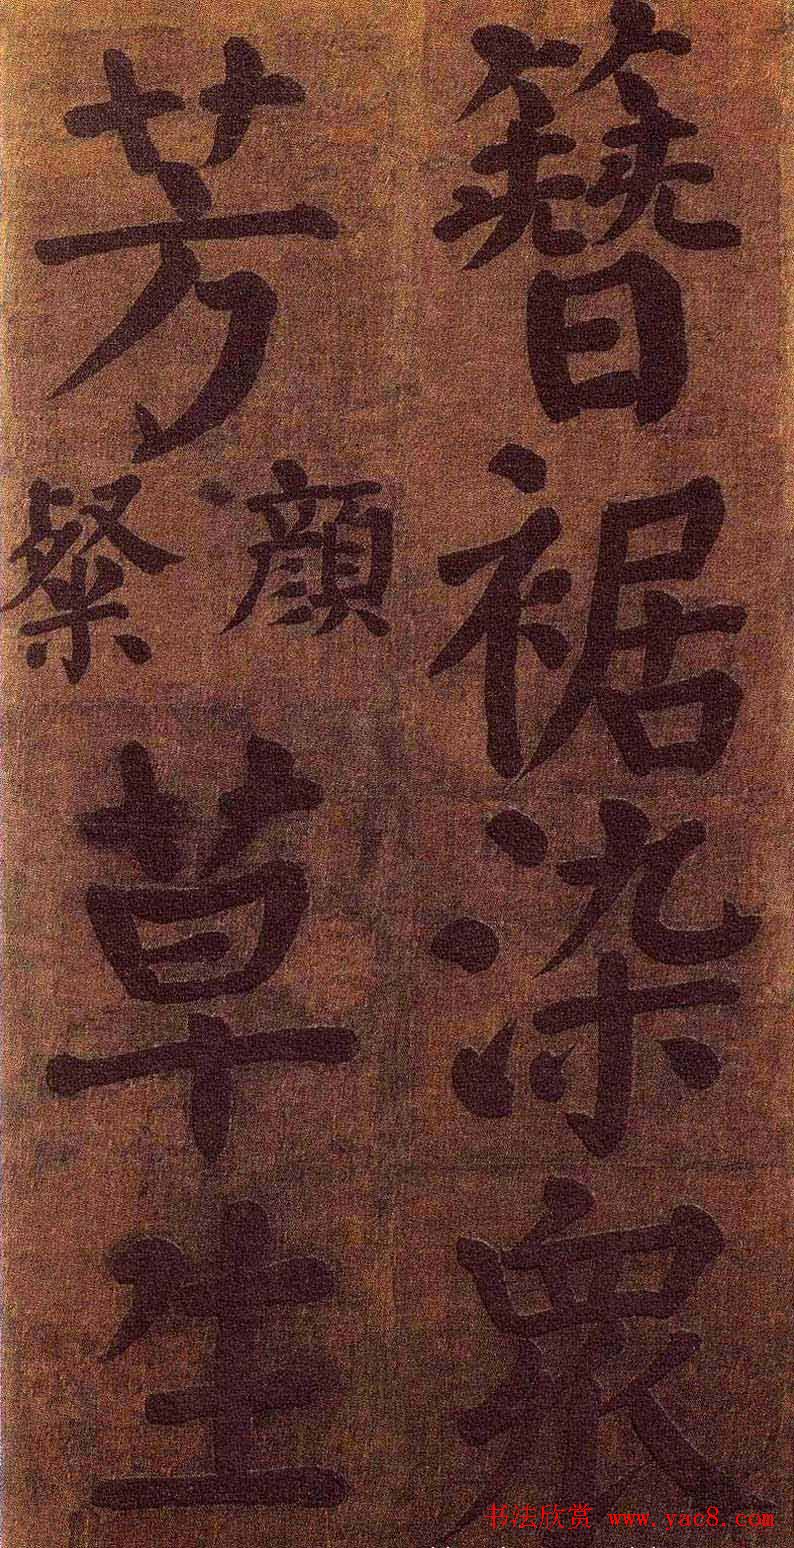 簪裾染眾
芳顏粲草生
书法欣赏 www.yac8.com